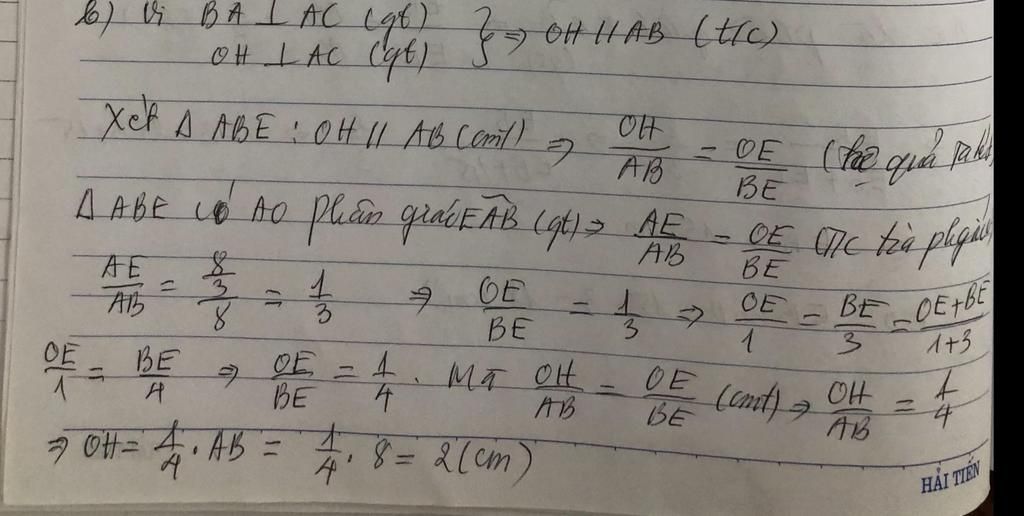 b) Vì BA ⊥ AC (gt) } ⇒ OH // AB (t/c)
OH ⊥ AC (gt)
Xét Δ ABE : OH // AB (cmt) ⇒ OH/AB = OE/BE (hệ quả
Δ ABE có AO phân giác EAB (gt) ⇒ AE/AB = OE/BE (T/c
AE/AB = (8/3)/8 = 1/3 ⇒ OE/BE = 1/3 ⇒ OE/1 = BE/3 = (OE+BE)/(1+3)
OE/1 = BE/4 ⇒ OE/BE = 1/4 . Mà OH/AB = OE/BE (cmt) ⇒ OH/AB = 1/4
⇒ OH = 1/4 . AB = 1/4 . 8 = 2 (cm)
HẢI TIẾN